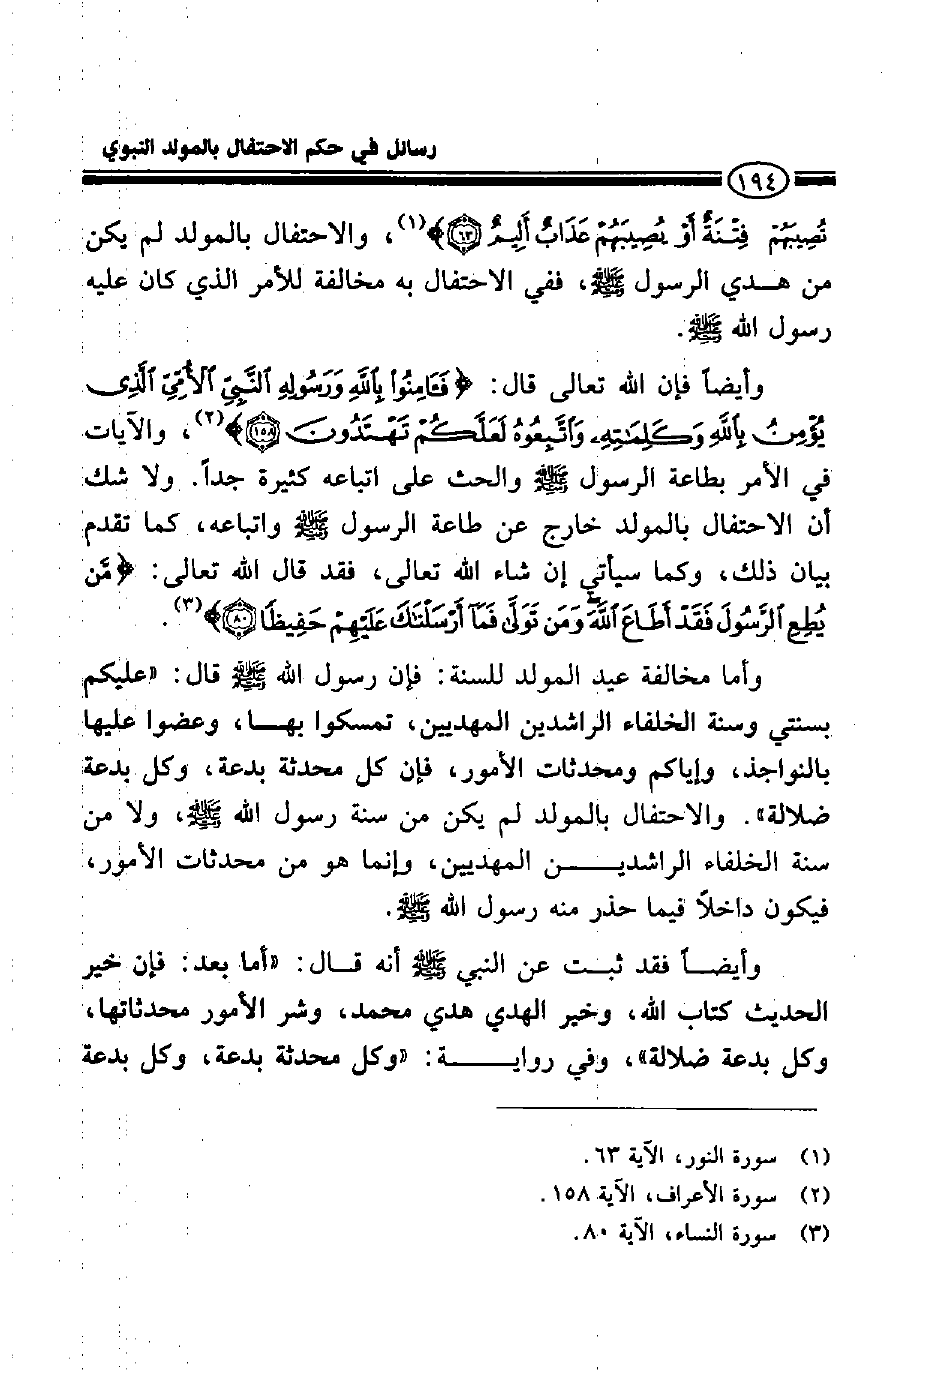 رسائل في حكم الاحتفال بالمولد النبوي
١٩٤
تُصِيبَهُمْ فِتْنَةٌ أَوْ يُصِيبَهُمْ عَذَابٌ أَلِيمٌ ۝٦٣﴾(١)، والاحتفال بالمولد لم يكن
من هـدي الرسول ﷺ، ففي الاحتفال به مخالفة للأمر الذي كان عليه
رسول الله ﷺ.
وأيضاً فإن الله تعالى قال: ﴿فَـَٔامِنُوا۟ بِٱللَّهِ وَرَسُولِهِ ٱلنَّبِىِّ ٱلْأُمِّىِّ ٱلَّذِى
يُؤْمِنُ بِٱللَّهِ وَكَلِمَـٰتِهِۦ وَٱتَّبِعُوهُ لَعَلَّكُمْ تَهْتَدُونَ ۝١٥٨﴾(٢)، والآيات
في الأمر بطاعة الرسول ﷺ والحث على اتباعه كثيرة جداً. ولا شك
أن الاحتفال بالمولد خارج عن طاعة الرسول ﷺ واتباعه، كما تقدم
بيان ذلك، وكما سيأتي إن شاء الله تعالى، فقد قال الله تعالى: ﴿مَّن
يُطِعِ ٱلرَّسُولَ فَقَدْ أَطَاعَ ٱللَّهَ ۖ وَمَن تَوَلَّىٰ فَمَآ أَرْسَلْنَـٰكَ عَلَيْهِمْ حَفِيظًا ۝٨٠﴾(٣).
وأما مخالفة عيد المولد للسنة: فإن رسول الله ﷺ قال: «عليكم
بسنتي وسنة الخلفاء الراشدين المهديين، تمسكوا بهـا، وعضوا عليها
بالنواجذ، وإياكم ومحدثات الأمور، فإن كل محدثة بدعة، وكل بدعة
ضلالة». والاحتفال بالمولد لم يكن من سنة رسول الله ﷺ، ولا من
سنة الخلفاء الراشديـــن المهديين، وإنما هو من محدثات الأمور،
فيكون داخلاً فيما حذر منه رسول الله ﷺ.
وأيضـاً فقد ثبـت عن النبي ﷺ أنه قـال: «أما بعد: فإن خير
الحديث كتاب الله، وخير الهدي هدي محمد، وشر الأمور محدثاتها،
وكل بدعة ضلالة»، وفي روايـــة: «وكل محدثة بدعة، وكل بدعة
(١) سورة النور، الآية ٦٣.
(٢) سورة الأعراف، الآية ١٥٨.
(٣) سورة النساء، الآية ٨٠.